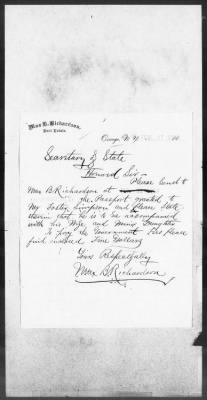 Max B. Richardson,
Real Estate.
Oswego, N.Y.
Secretary of State
Honord Sir
Please send to
Max B Richardson at
the Passport granted to
My Father Simpson and Please State
therein that he is to be accompanied
with his Wife and Minor Daughter
To pay the Government Fees Please
find inclosed Five Dollars
Yours Respectfully
Max B. Richardson